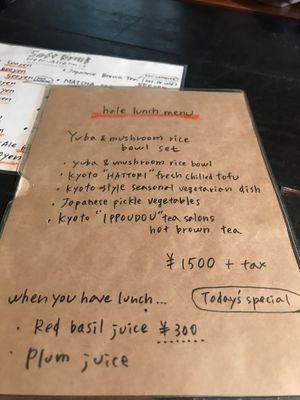 Soft Drink
500yen
600yen
• Japanese Brown Tea
hale lunch menu
Yuba & mushroom rice
bowl set
• yuba & mushroom rice bowl
• Kyoto "HATTORI" fresh chilled tofu
• Kyoto style seasonal vegetarian dish
• Japanese pickle vegetables
• Kyoto "IPPOUDOU" tea salons
hot brown tea
¥1500 + tax
when you have lunch... Today's special
• Red basil juice ¥300
• Plum juice